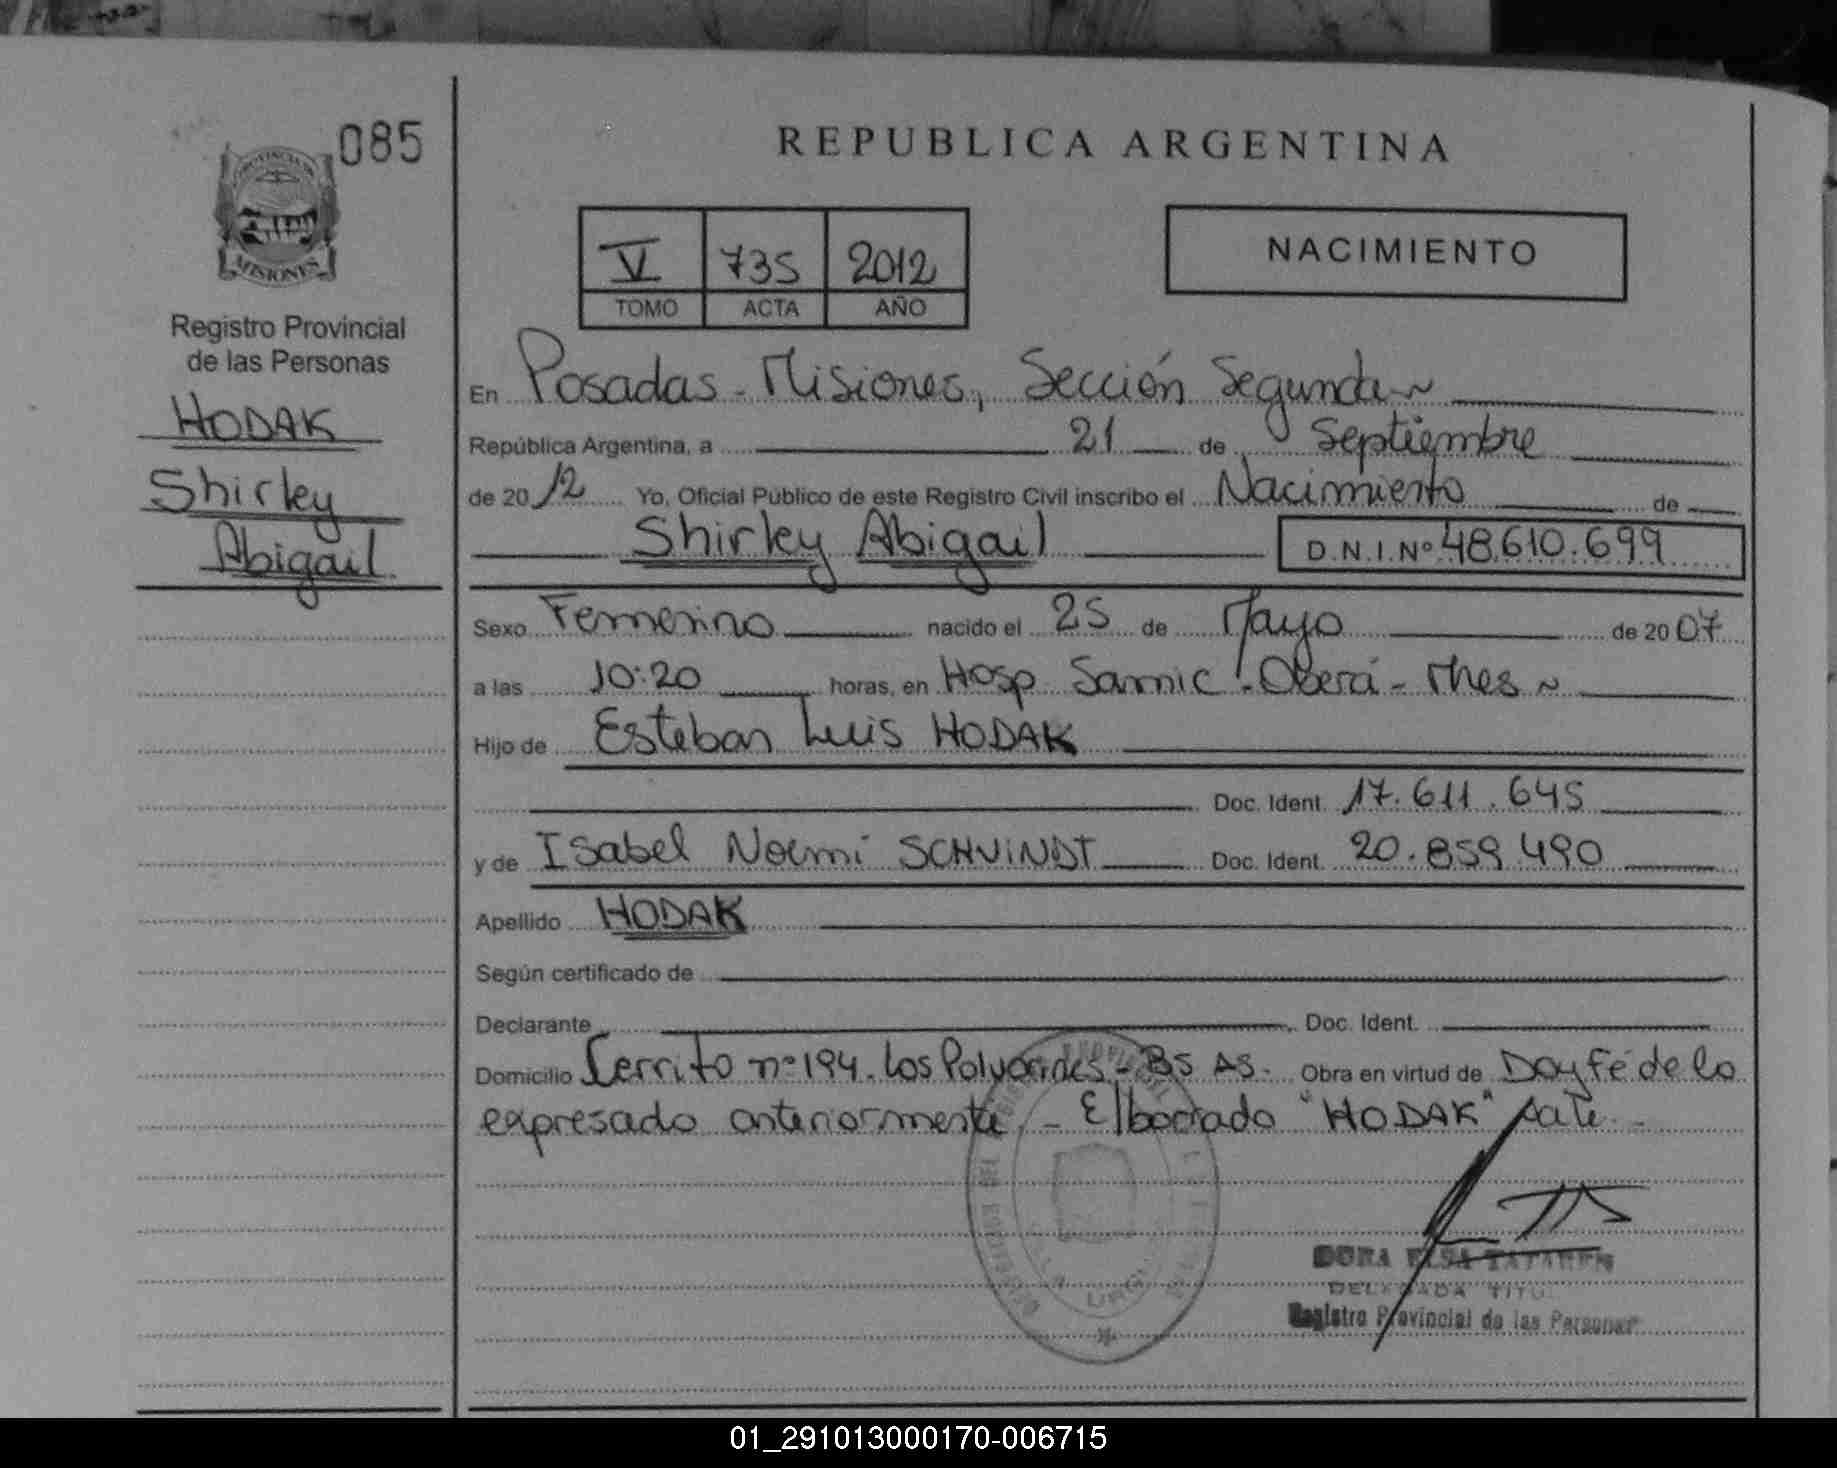 085
PROVINCIA DE
MISIONES
Registro Provincial
de las Personas
HODAK
Shirley
Abigail
REPUBLICA ARGENTINA
V 735 2012
TOMO ACTA AÑO
NACIMIENTO
En Posadas - Misiones, Sección Segunda ~
República Argentina, a 21 de Septiembre
de 2012 Yo, Oficial Público de este Registro Civil inscribo el Nacimiento de
Shirley Abigail D.N.I.Nº 48.610.699
Sexo Femenino nacido el 25 de Mayo de 2007
a las 10:20 horas, en Hosp. Samic - Oberá - Mnes ~
Hijo de Esteban Luis HODAK
Doc. Ident. 17.611.645
y de Isabel Noemi SCHVINDT Doc. Ident. 20.859.490
Apellido HODAK
Según certificado de
Declarante Doc. Ident.
Domicilio Cerrito nº 194. Los Polvorines - Bs As. Obra en virtud de Doy Fé de lo
expresado anteriormente. - El borrado "HODAK" vale. -
DORA ELSA
DELEGADA TITUL
Registro Provincial de las Personas
01_291013000170-006715